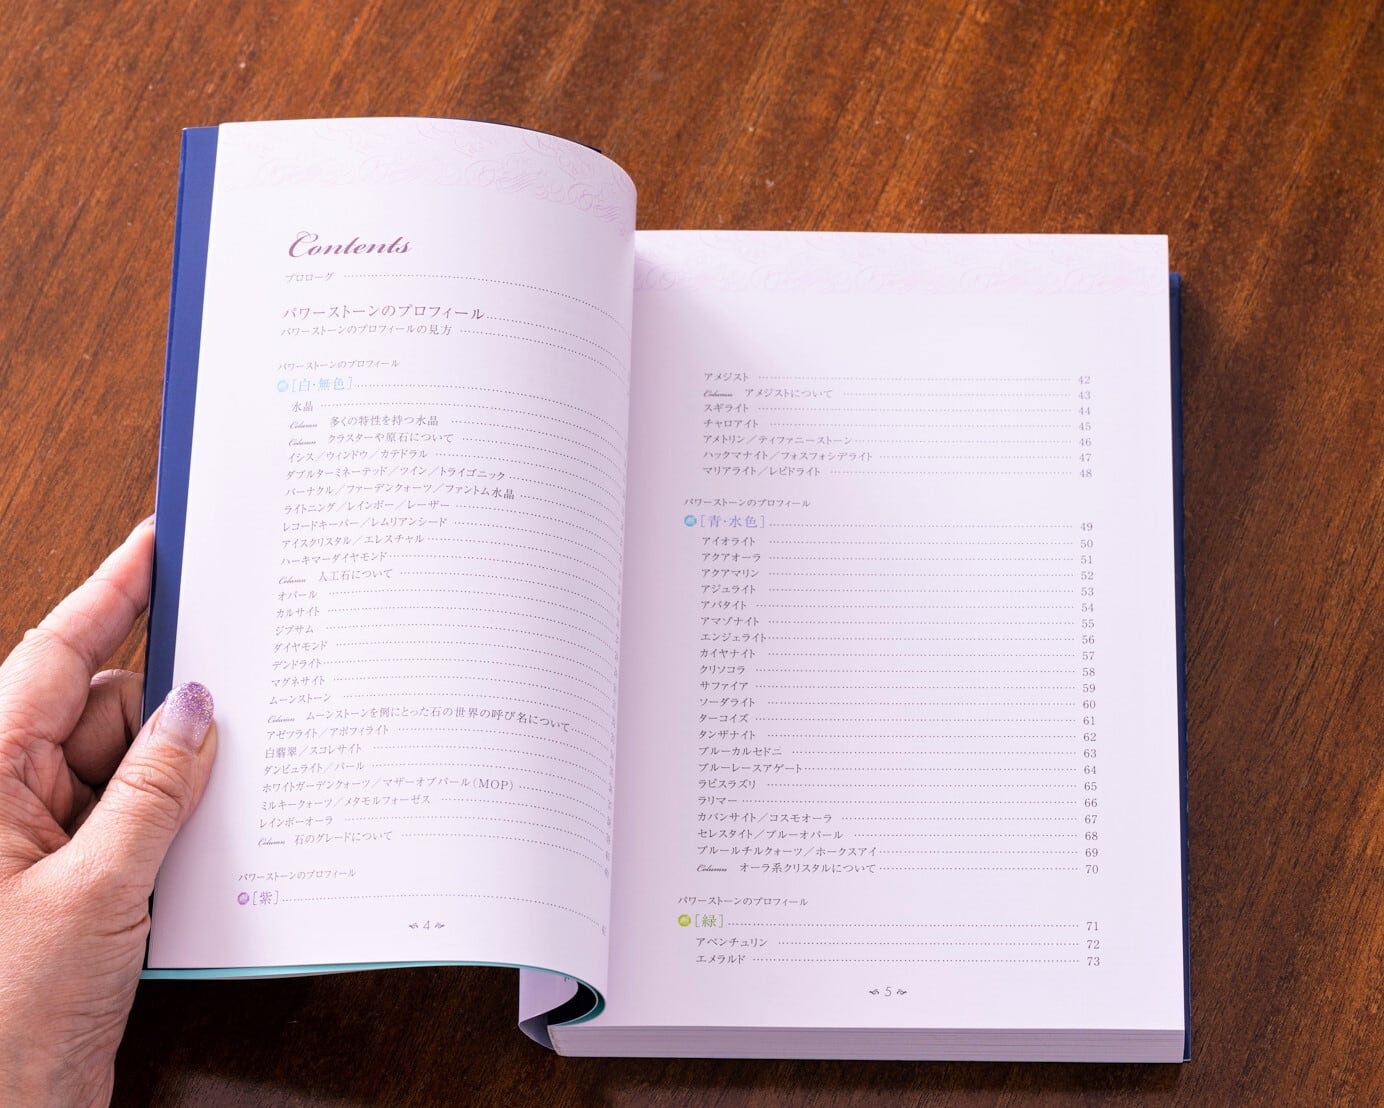 Contents
プロローグ
パワーストーンのプロフィール
パワーストーンのプロフィールの見方
パワーストーンのプロフィール
[白・無色]
水晶
Column 多くの特性を持つ水晶
Column クラスターや原石について
イシス／ウィンドウ／カテドラル
ダブルターミネーテッド／ツイン／トライゴニック
バーナクル／ファーデンクォーツ／ファントム水晶
ライトニング／レインボー／レーザー
レコードキーパー／レムリアンシード
アイスクリスタル／エレスチャル
ハーキマーダイヤモンド
Column 人工石について
オパール
カルサイト
ジプサム
ダイヤモンド
デンドライト
マグネサイト
ムーンストーン
Column ムーンストーンを例にとった石の世界の呼び名について
アゼツライト／アポフィライト
白翡翠／スコレサイト
ダンビュライト／パール
ホワイトガーデンクォーツ／マザーオブパール（MOP）
ミルキークォーツ／メタモルフォーゼス
レインボーオーラ
Column 石のグレードについて
パワーストーンのプロフィール
[紫]
4
アメジスト 42
Column アメジストについて 43
スギライト 44
チャロアイト 45
アメトリン／ティファニーストーン 46
ハックマナイト／フォスフォシデライト 47
マリアライト／レピドライト 48
パワーストーンのプロフィール
[青・水色] 49
アイオライト 50
アクアオーラ 51
アクアマリン 52
アジュライト 53
アパタイト 54
アマゾナイト 55
エンジェライト 56
カイヤナイト 57
クリソコラ 58
サファイア 59
ソーダライト 60
ターコイズ 61
タンザナイト 62
ブルーカルセドニ 63
ブルーレースアゲート 64
ラピスラズリ 65
ラリマー 66
カバンサイト／コスモオーラ 67
セレスタイト／ブルーオパール 68
ブルールチルクォーツ／ホークスアイ 69
Column オーラ系クリスタルについて 70
パワーストーンのプロフィール
[緑] 71
アベンチュリン 72
エメラルド 73
5